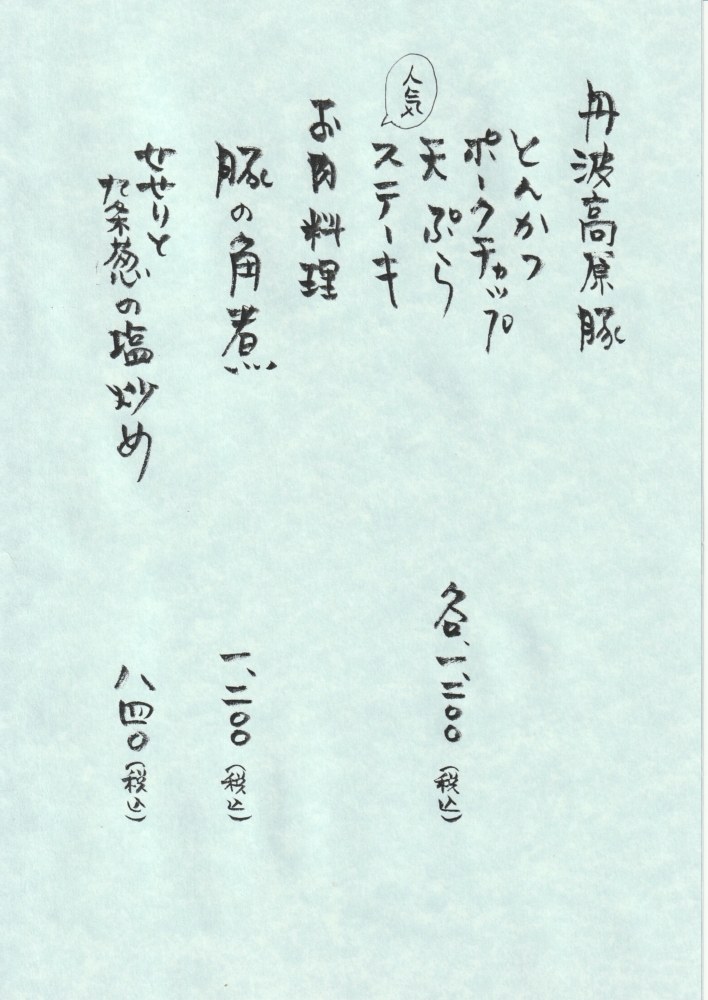 丹波高原豚
とんかつ
ポークチャップ
天ぷら
人気
ステーキ
各、一、二〇〇(税込)
お肉料理
豚の角煮
一、二〇〇(税込)
せせりと
九条葱の塩炒め
八四〇(税込)